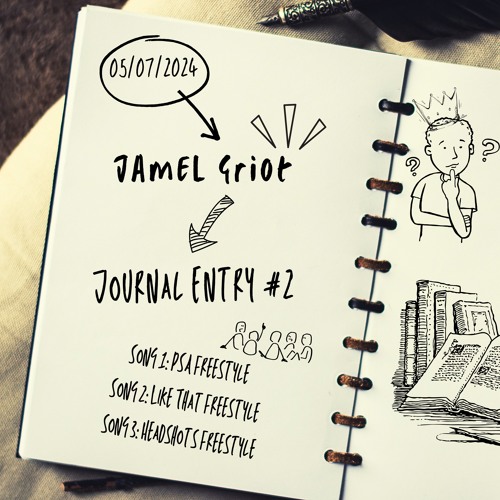 05/07/2024
JAMEL Griot
JOURNAL ENTRY #2
SONG 1: PSA FREESTYLE
SONG 2: LIKE THAT FREESTYLE
SONG 3: HEADSHOTS FREESTYLE
? ?